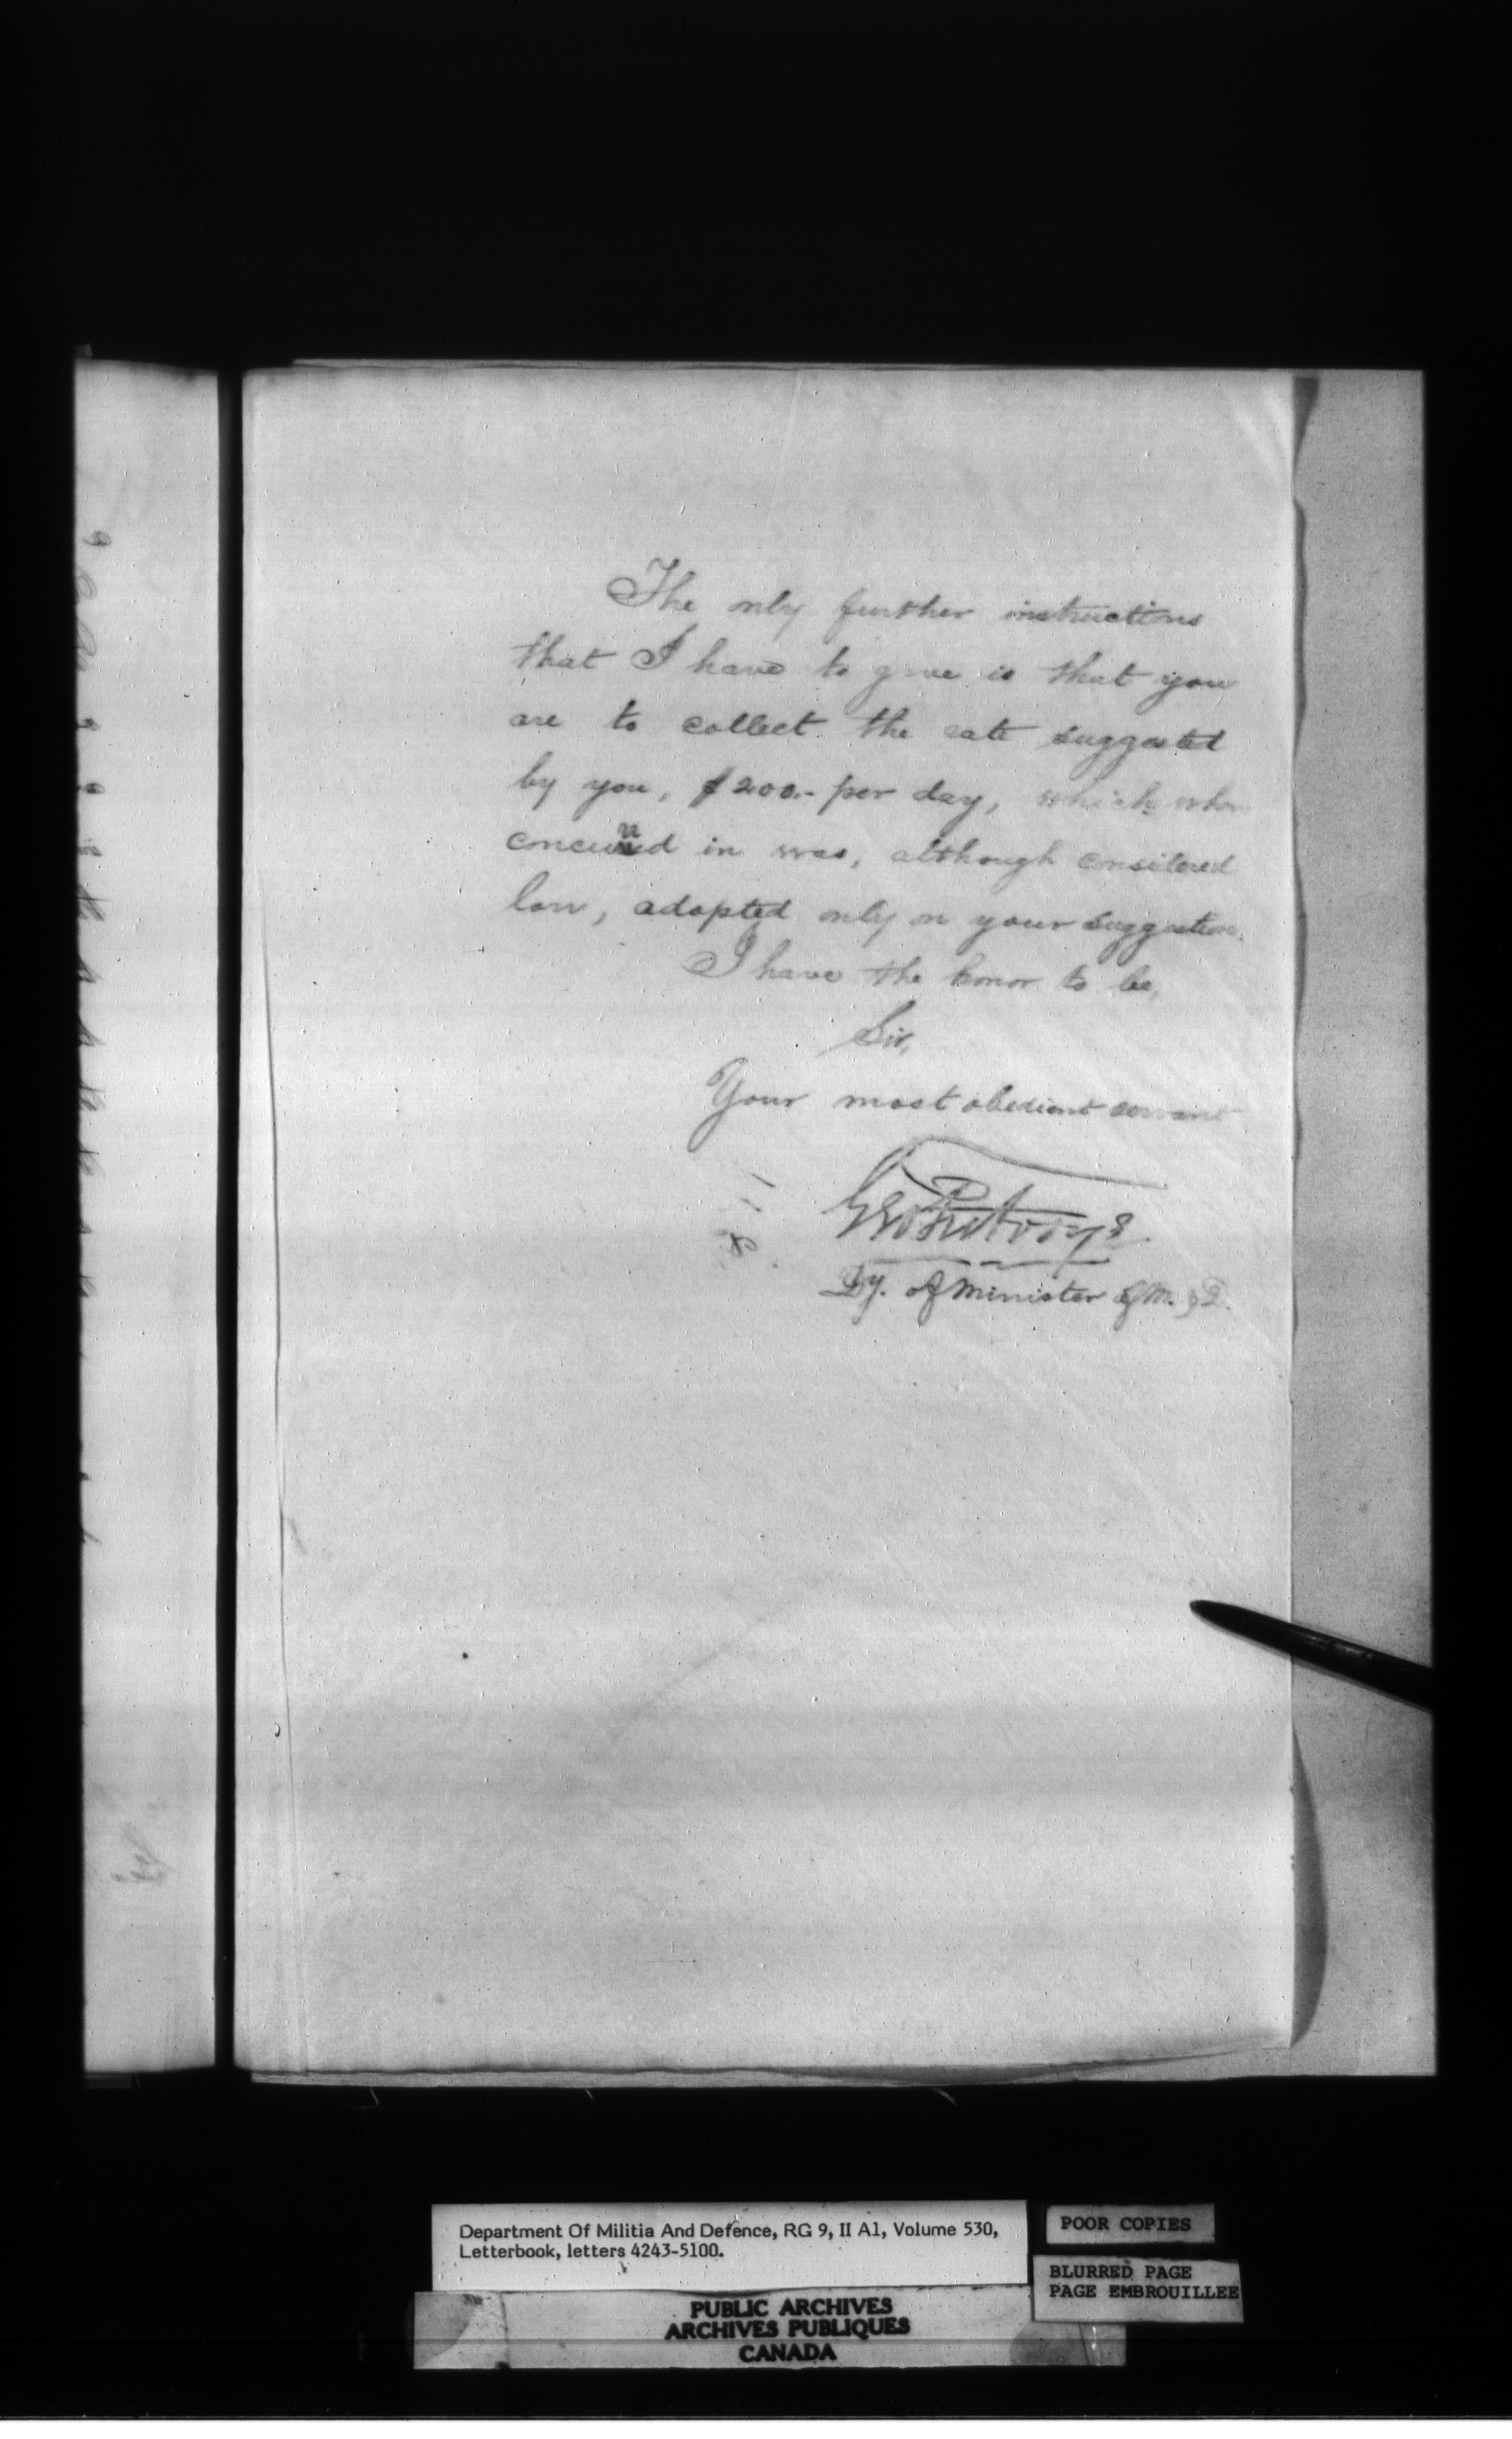 The only further instructions
that I have to give is that you
are to collect the rate suggested
by you, $200.- per day, which when
concurred in was, although considered
low, adopted only on your suggestion.
I have the honor to be,
Sir,
Your most obedient servant
Dy. of Minister of M. & D.
Department Of Militia And Defence, RG 9, II A1, Volume 530,
Letterbook, letters 4243-5100.
POOR COPIES
BLURRED PAGE
PAGE EMBROUILLEE
PUBLIC ARCHIVES
ARCHIVES PUBLIQUES
CANADA